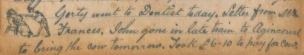 Gerty went to Dentist today, Letter from Mr
Frances, John gone in late train to
to bring the cow tomorrow. Took £6-10 to pay for her